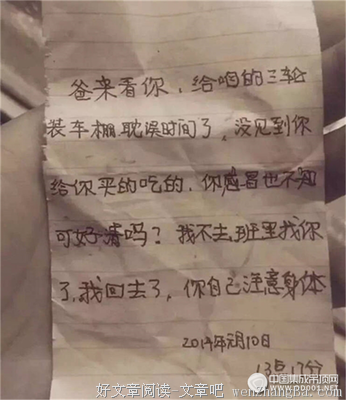 爸来看你，给咱的三轮
装车棚耽误时间了，没见到你
给你买的吃的，你感冒也不知
可好清吗？我不去班里找你
了，我回去了，你自己注意身体
2014年2月10日
3点17分
中国集成吊顶网
www.jc001.com
好文章阅读-文章吧 wenzhangba.com